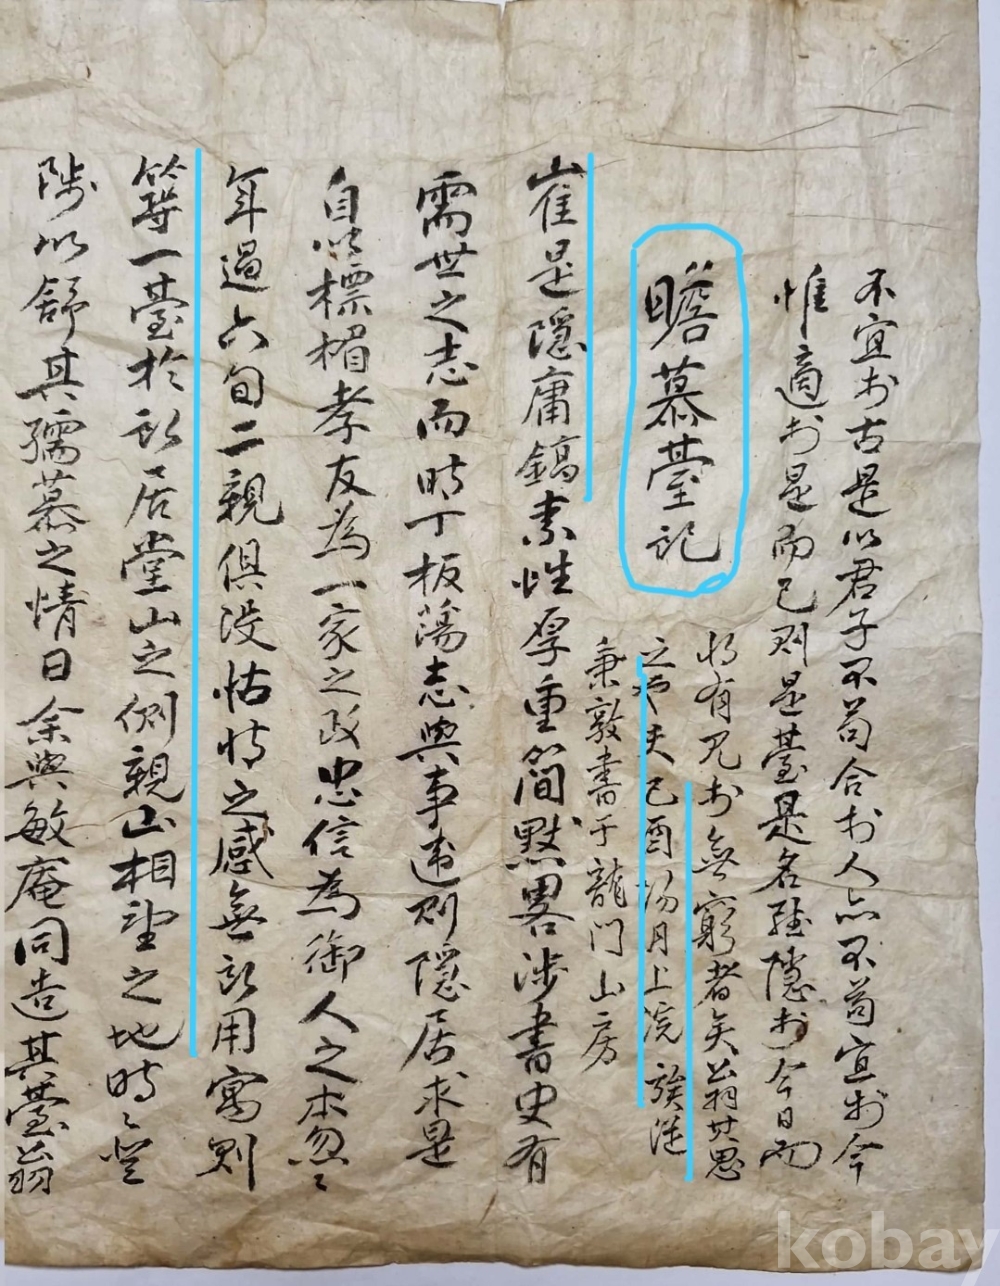 不宜於古是以君子不苟合於人亦不苟宜於今
惟適於是而已則是臺是名雖隱於今日而
將有見於無窮者矣翁其思
之也夫己酉陽月上浣族從
秉敦書于龍門山房
瞻慕臺記
崔是隱庸鎬素性厚重簡默畧涉書史有
需世之志而時丁板蕩志與事違則隱居求是
自以標楣孝友為一家之政忠信為御人之本忽〻
年過六旬二親俱沒怙恃之感無以用寓則
築一臺於所居堂山之側親山相望之地時〻登
陟以舒其孺慕之情日余與敏庵同造其臺翁
kobay